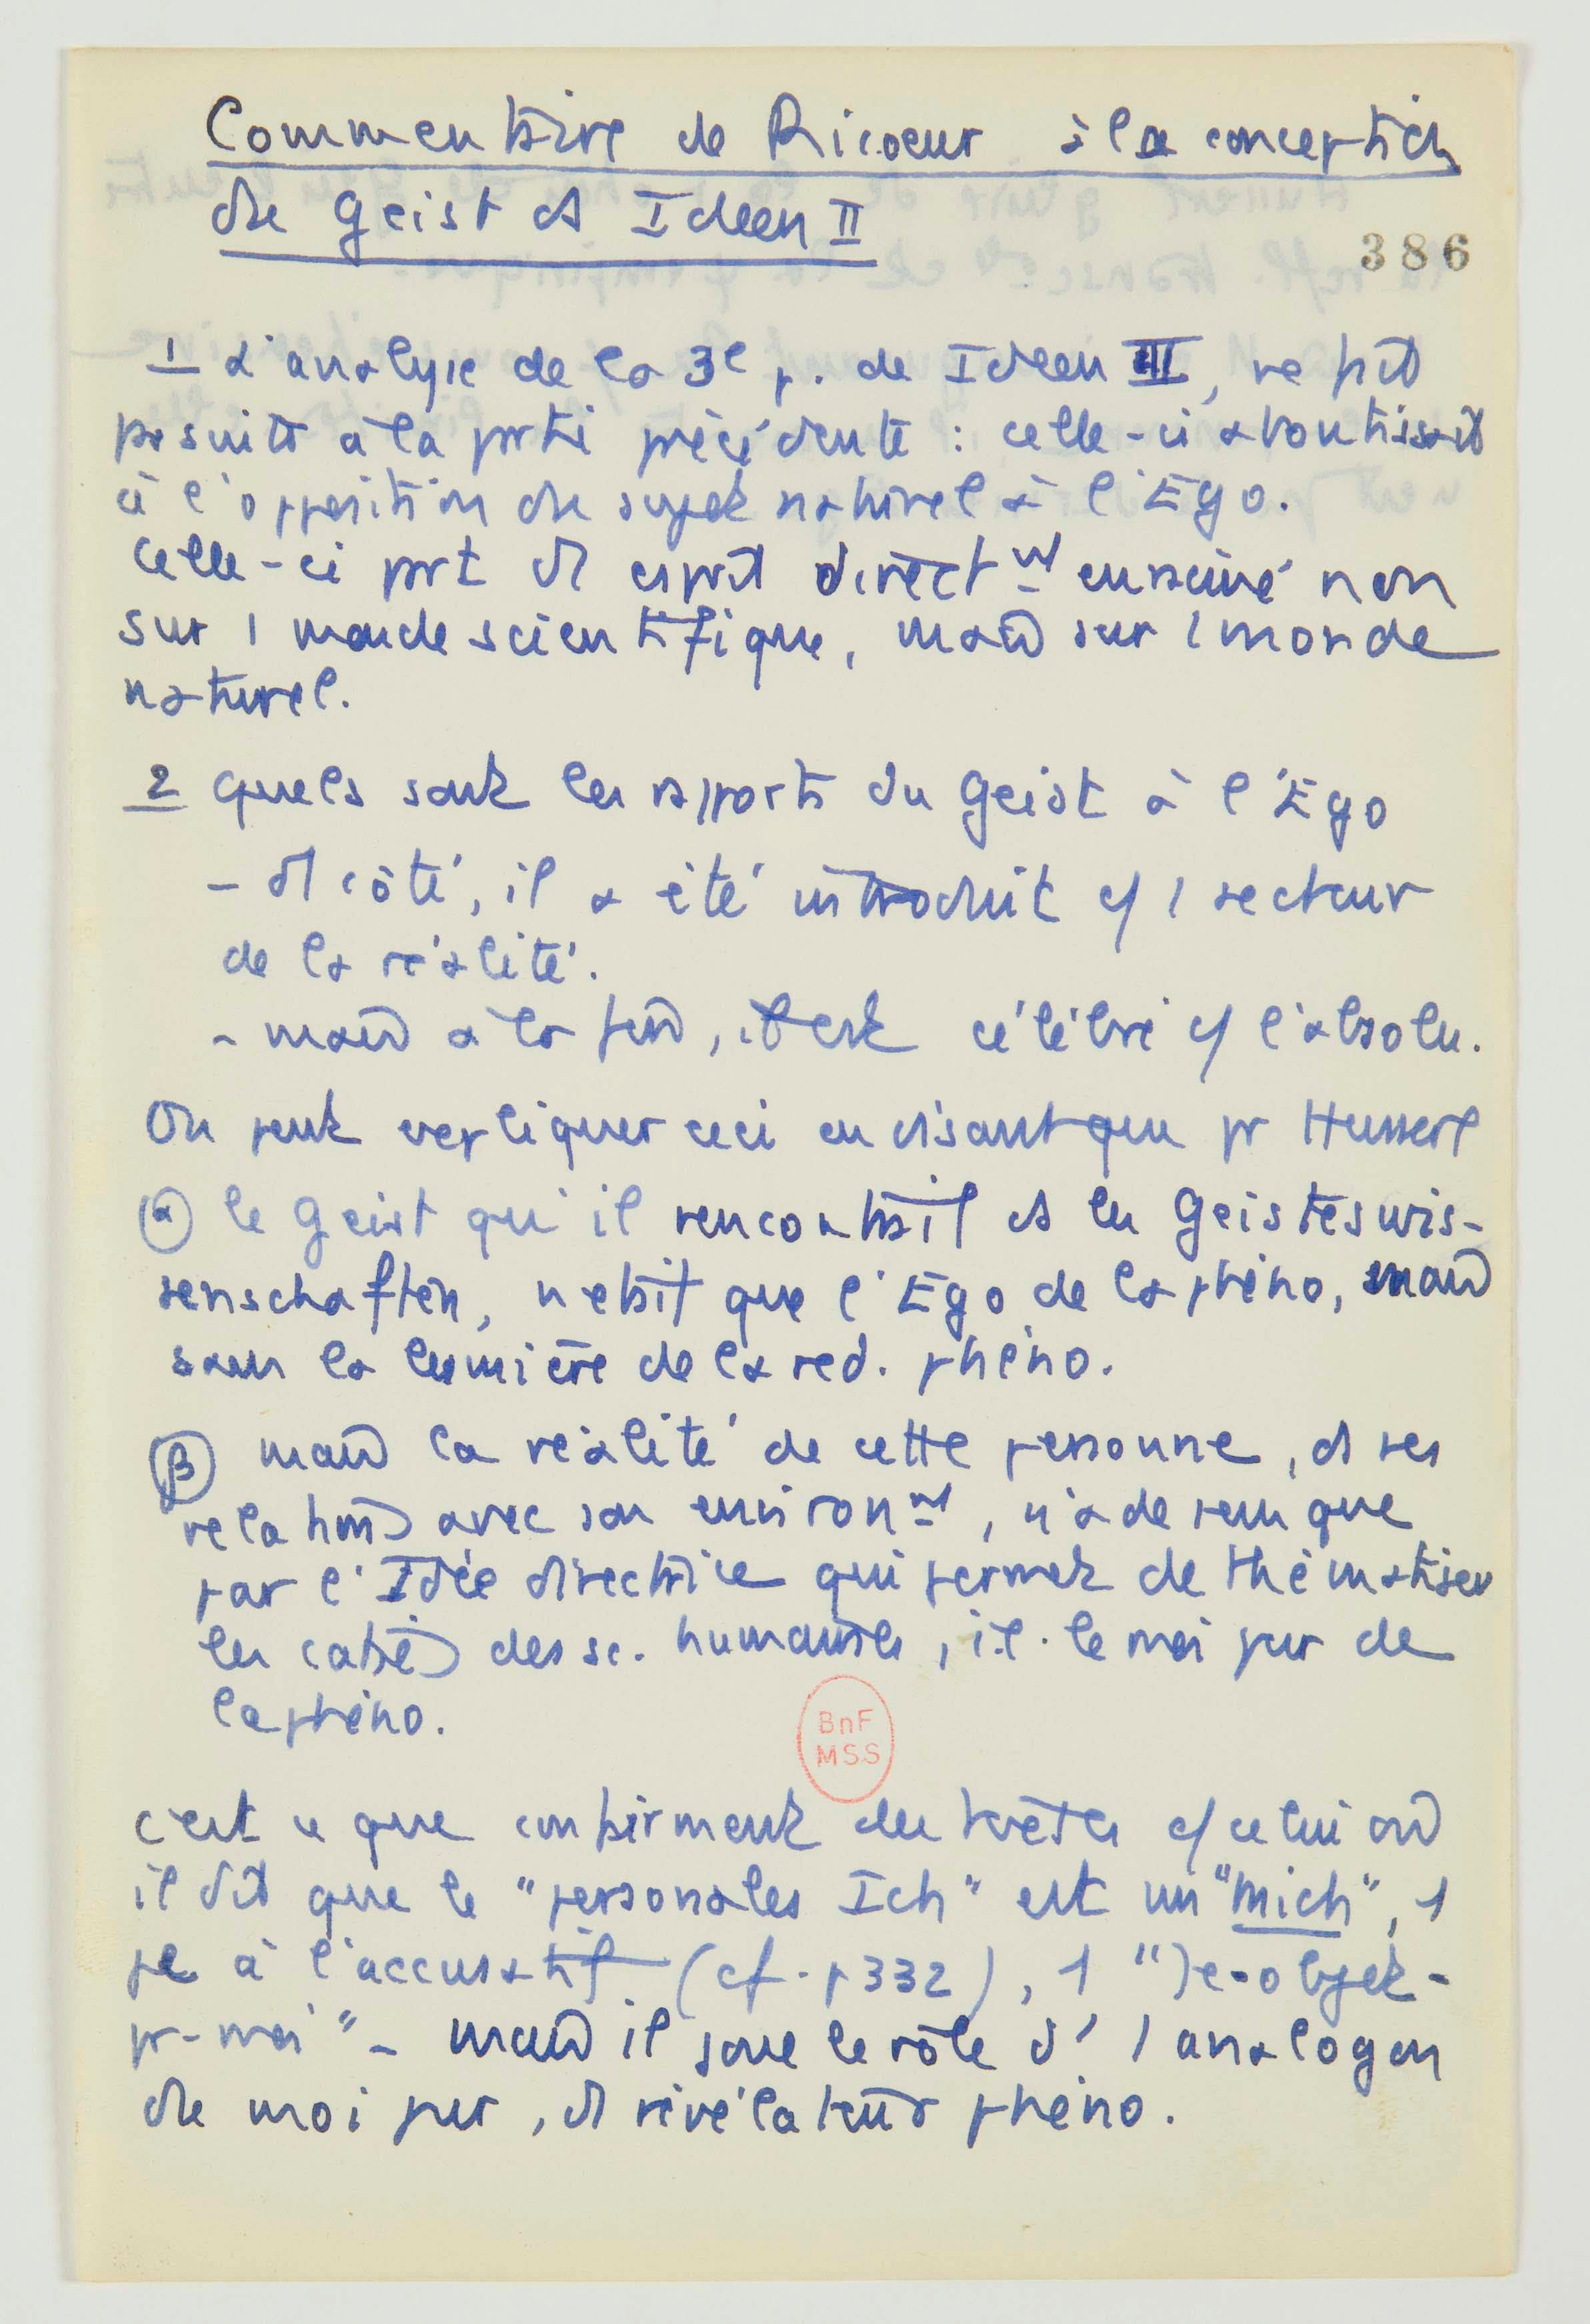 Commentaire de Ricoeur à la conception
du Geist ds Ideen II
386
1 L'analyse de la 3e p. de Ideen III, ne fait
pas suite à la partie précédente : celle-ci aboutissait
à l'opposition du sujet naturel à l'Ego.
Celle-ci part d'1 esprit directmt enraciné non
sur 1 monde scientifique, mais sur 1 monde
naturel.
2 Quels sont les rapports du Geist à l'Ego
- d'1 côté, il a été introduit c/ 1 secteur
de la réalité.
- mais à la fin, il est célébré c/ l'absolu.
On peut expliquer ceci en disant que pr Husserl
α le Geist qu'il rencontrait ds les Geisteswis-
senschaften, n'était que l'Ego de la phéno, mais
sans la lumière de la red. phéno.
β mais la réalité de cette personne, ds ses
relations avec son environmt, n'a de sens que
par l'Idée directrice qui permet de thématiser
les catés des sc. humaines, i.e. le moi pur de
la phéno.
BnF
MSS
C'est ce que confirment des textes c/ celui où
il dit que le "personales Ich" est un "mich", 1
je à l'accusatif (cf. p 332), 1 "Je-objet-
pr-moi" - mais il joue le rôle d'1 analogon
du moi pur, d'1 révélateur phéno.